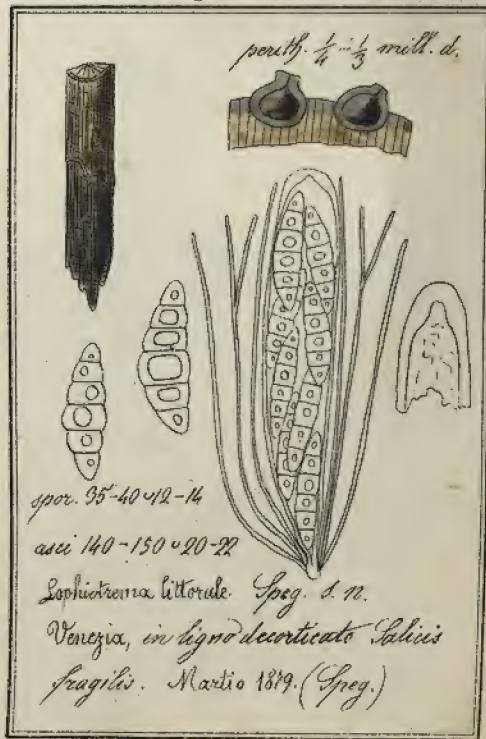 perith. 1/4 - 1/3 mill. d.
spor. 35-40 ᴗ 12-14
asci 140-150 ᴗ 20-22
Lophiotrema littorale. Speg. s. n.
Venezia, in ligno decorticato Salicis
fragilis. Martio 1879. (Speg.)